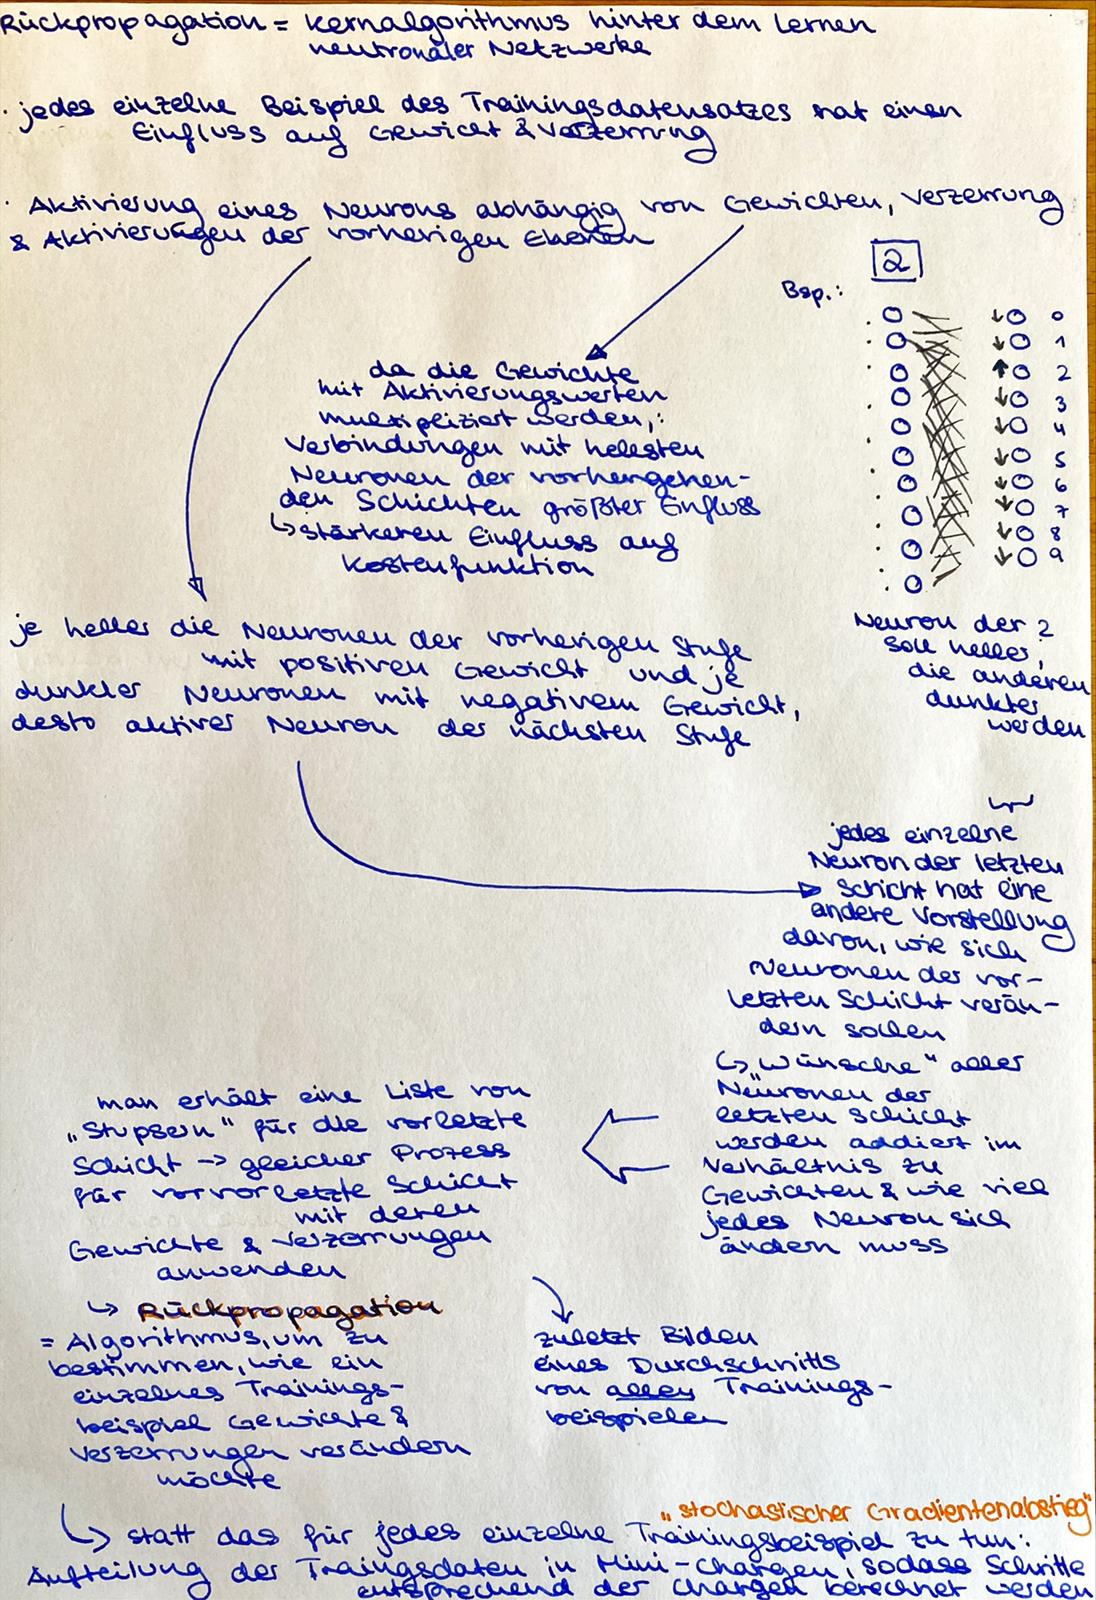 Rückpropagation = Kernalgorithmus hinter dem Lernen
neutronaler Netzwerke
· jedes einzelne Beispiel des Trainingsdatensatzes hat einen
Einfluss auf Gewicht & Verzerrung
· Aktivierung eines Neurons abhängig von Gewichten, Verzerrung
& Aktivierungen der vorherigen Ebenen
2
Bsp.:
0
1
2
3
4
5
6
7
8
9
da die Gewichte
mit Aktivierungswerten
multipliziert werden,:
Verbindungen mit hellsten
Neuronen der vorhergehen-
den Schichten größter Einfluss
↳ stärkeren Einfluss auf
Kostenfunktion
Neuron der 2
soll heller,
die anderen
dunkler
werden
je heller die Neuronen der vorherigen Stufe
mit positiven Gewicht und je
dunkler Neuronen mit negativem Gewicht,
desto aktiver Neuron der nächsten Stufe
jedes einzelne
Neuron der letzten
Schicht hat eine
andere Vorstellung
davon, wie sich
Neuronen der vor-
letzten Schicht verän-
dern sollen
↳ „Wünsche" aller
Neuronen der
letzten Schicht
werden addiert im
Verhältnis zu
Gewichten & wie viel
jedes Neuron sich
ändern muss
man erhält eine Liste von
„Stupsern" für die vorletzte
Schicht → gleicher Prozess
für vorvorletzte Schicht
mit deren
Gewichte & Verzerrungen
anwenden
↳ Rückpropagation
= Algorithmus, um zu
bestimmen, wie ein
einzelnes Trainings-
beispiel Gewichte &
Verzerrungen verändern
möchte
zuletzt Bilden
eines Durchschnitts
von allen Trainings-
beispielen
„stochastischer Gradientenabstieg"
↳ statt das für jedes einzelne Trainingsbeispiel zu tun:
Aufteilung der Traingsdaten in Mini-Chargen, sodass Schritte
entsprechend der Chargen berechnet werden